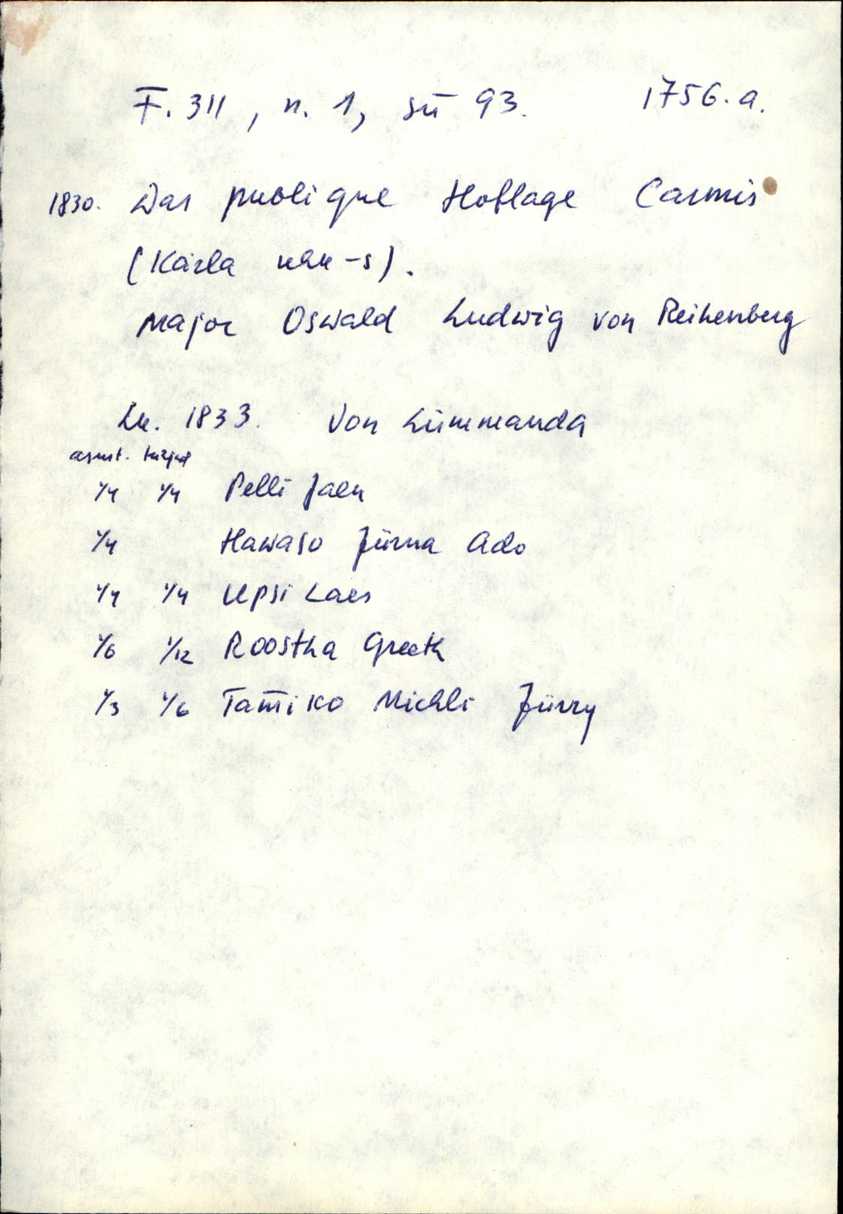 F. 311, n. 1, sü 93. 1756. a.
1830. Das publique Hoflage Carmis
(Kärla khk-s).
Major Oswald Ludwig von Reihenberg
Lk. 1833. Von Lümmanda
asust. tegel
1/4 1/4 Pelli Jaen
1/4 Hawaso Jürna Ado
1/4 1/4 Upsi Laes
1/6 1/12 Roostha Greeth
1/3 1/6 Tammiko Michli Jürry